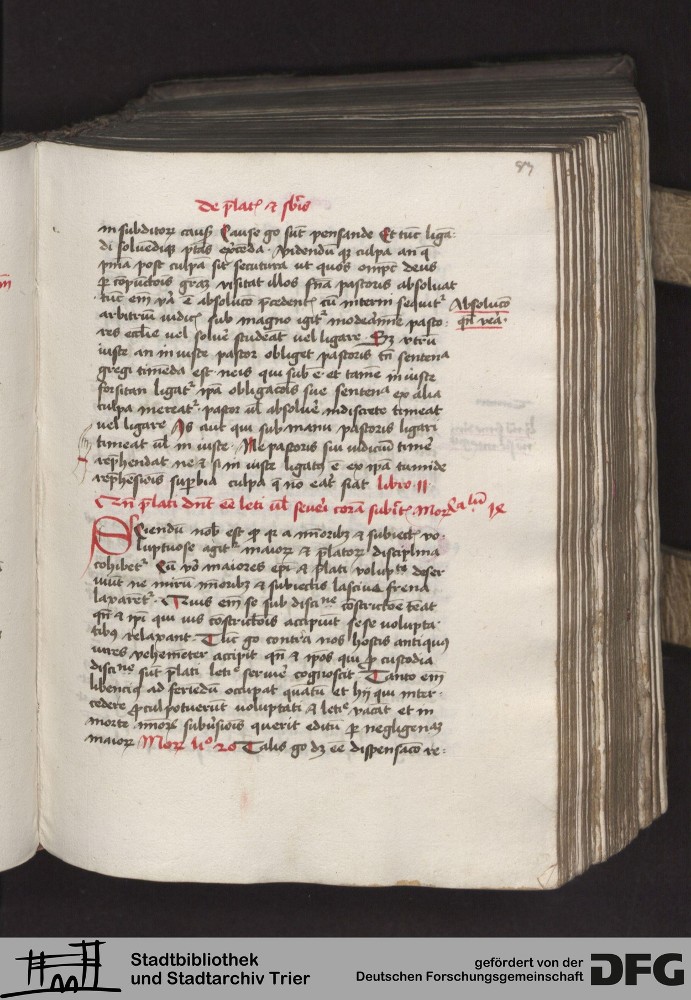 87
De p̄lat᷒ ⁊ sb̄is
in subditorꝝ caus᷒ Cause g̊ sūt pensande Et tūc ligā:
di soluēdiqꝫ ptās ex̄cēda · Videndū qꝫ culpa an q̄
pnīa post culpā sit secutura ut quos omp̄c deus
ꝑ cōpūctiōis grāꝫ visitat illos snīa pastoris absoluat
tūc em̄ v̄a ē absoluco p̄cedent᷒ cū interni sequit᷑
Absoluco
arbitriū iudic᷒ sub magno igit᷑ modeāmīe pasto:
qn̄ vēa ·
res ecclīe vel solue᷒ studeāt vel ligare · Sꝫ vtrū
iuste an iniuste pastor obliget pastoris tn̄ sentena
gregi timēda est neis qui sub ē et tamē iniuste
forsitan ligat᷑ ip̄ā obligacōis sue sentena ex alia
culpa mereat᷑ · pastor ul̄ absolue᷒ indiscrete timeat
vel ligare Is aut̄ qui sub manu pastoris ligari
timeat ul̄ iniuste · Ne pastoris sui iudiciū timē᷒
rep̄hendat ne ⁊ si iniuste ligat᷒ ē ex ip̄a tumide
rep̄hēsiōis sup̄bia culpa q̄ nō eāt fiat libro II
Qn̄ p̄lati dn̄t eē leti ul̄ seueri corā subdit᷒ · Mor᷒ IX
Sciendū nob᷒ est ꝙ qꝛ a mīoribꝫ ⁊ subiect᷒ vo:
luptuose agit᷑ maiorꝝ ⁊ p̄latorꝝ disciplina
cohibet᷑ Cū v̊o maiores ep̄i ⁊ p̄lati volupt᷒ deser
uiūt ne mirū mīoribꝫ ⁊ subiectis lasciuie frena
laxaret᷑ · Quis em̄ se sub discine cōstrictōe teāt
qn̄ ⁊ ip̄i qui ius cōstrictōis accipiūt sese volupta·
tibꝰ relaxant · Tūc g̊ contra nos hostis antiquꝰ
vires vehemēter accipit qn̄ ⁊ ip̄os qui ꝑ custodia
discine sūt p̄lati letic᷒ seruire᷒ cognoscit Tanto em̄
libenciꝰ ad feriēdū occupat quātū et hij qui inter·
cedere ꝑ culp᷒ potuerūt voluptati ⁊ letic᷒ vacāt et in
morte mīorꝝ subūsiōis querit editū ꝑ negligenaꝫ
maiorꝝ Morꝝ li° 20 Talis g̊ dꝫ eē dispensaco re:
Stadtbibliothek
und Stadtarchiv Trier
gefördert von der
Deutschen Forschungsgemeinschaft
DFG